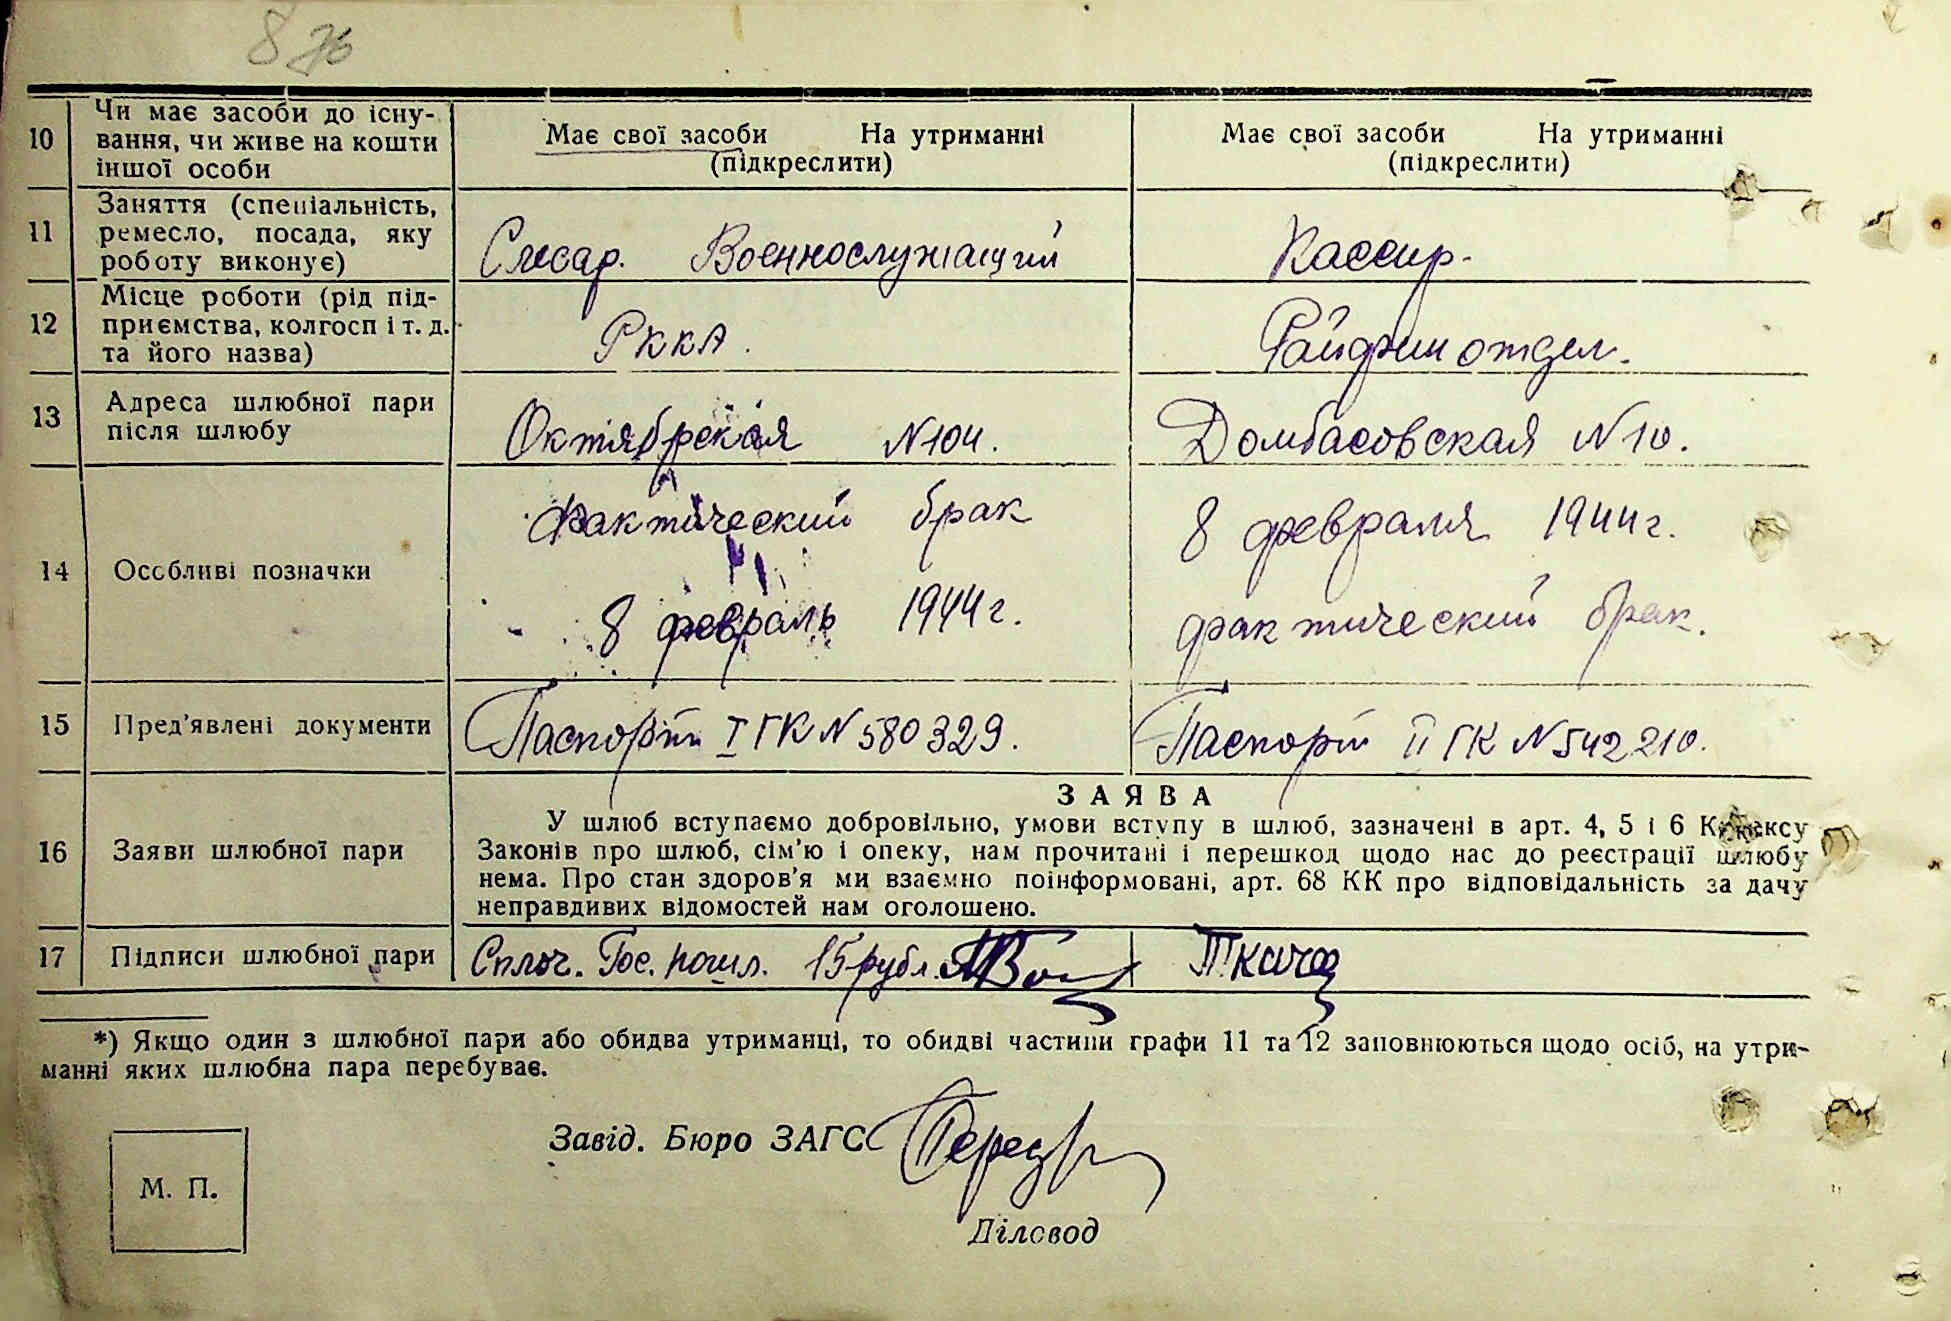 8
10 Чи має засоби до існу-
вання, чи живе на кошти
іншої особи
Має свої засоби На утриманні
(підкреслити)
Має свої засоби На утриманні
(підкреслити)
11 Заняття (спеціальність,
ремесло, посада, яку
роботу виконує)
Слесар. Военнослужащий
Кассир.
12 Місце роботи (рід під-
приємства, колгосп і т. д.
та його назва)
РККА.
Райфинотдел.
13 Адреса шлюбної пари
після шлюбу
Октябрская №104.
Домбасовская №10.
14 Особливі позначки
Фактический брак
8 февраль 1944 г.
8 февраля 1944 г.
фактический брак.
15 Пред'явлені документи
Паспорт I ГК № 580329.
Паспорт II ГК № 542210.
16 Заяви шлюбної пари
ЗАЯВА
У шлюб вступаємо добровільно, умови вступу в шлюб, зазначені в арт. 4, 5 і 6 Кодексу
Законів про шлюб, сім'ю і опеку, нам прочитані і перешкод щодо нас до реєстрації шлюбу
нема. Про стан здоров'я ми взаємно поінформовані, арт. 68 КК про відповідальність за дачу
неправдивих відомостей нам оголошено.
17 Підписи шлюбної пари
Сплоч. Гос. пошл. 15 рубл.
Ткача
*) Якщо один з шлюбної пари або обидва утриманці, то обидві частини графи 11 та 12 заповнюються щодо осіб, на утри-
манні яких шлюбна пара перебуває.
Завід. Бюро ЗАГС
М. П.
Діловод